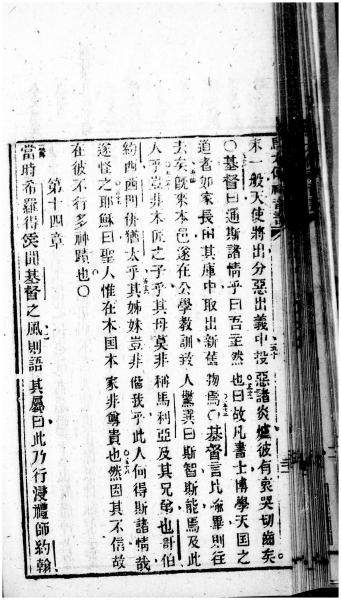 馬太傳福音書
末一般天使將出分惡出義中投惡諸炎爐彼有哀哭切齒矣。
○基督曰通斯諸情乎曰吾主然也曰故凡書士博學天国之
道者如家長由其庫中取出新舊物焉○基督言比喻畢則往
去矣旣來本邑遂在公學教訓致人驚異曰斯智斯能焉及此
人乎豈非木匠之子乎其母莫非稱馬利亞及其兄弟也
約西西門佛猶太乎其姊妹豈非偕我乎此人何得斯諸情哉
遂怪之耶穌曰聖人惟在本国本家非尊貴也然因其不信故
在彼不行多神蹟也○
第十四章
當時希羅得侯聞基督之風則語其屬曰此乃行浸禮師約翰